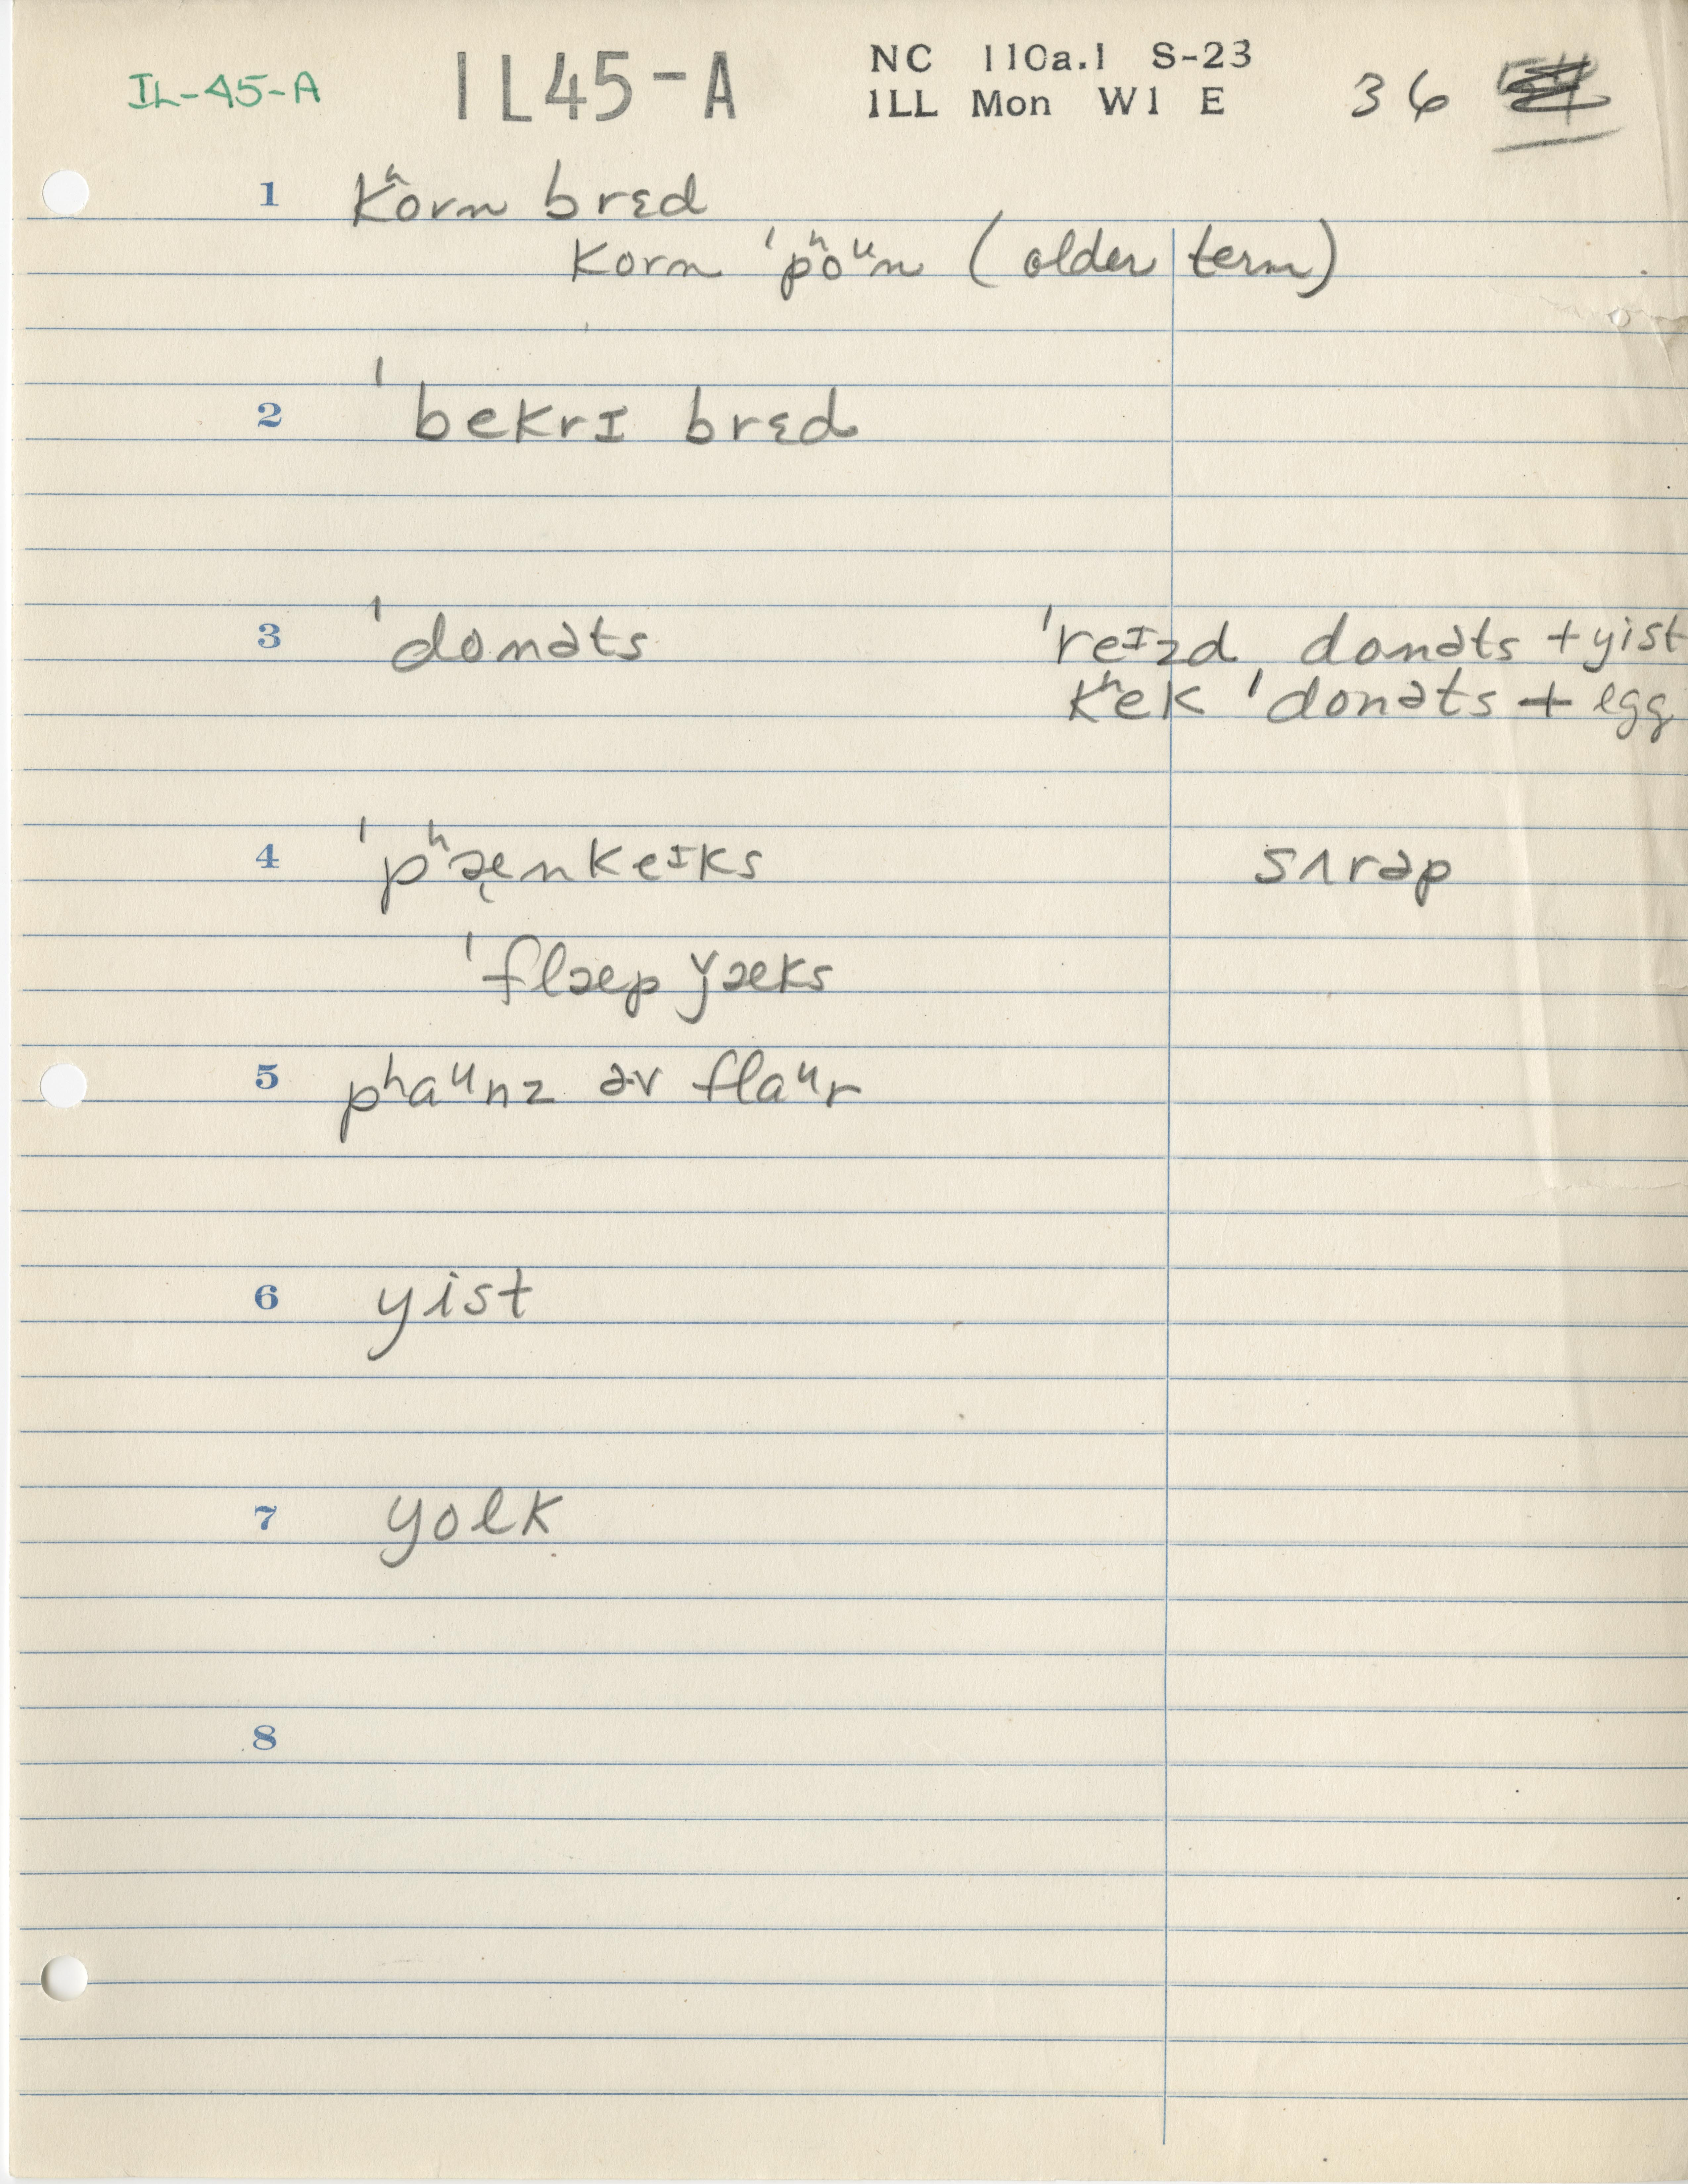 IL-45-A
IL45-A
NC 110a.1 S-23
ILL Mon W1 E
36
1 kʰorn brɛd
korn ˈpʰoᵘn (older term)
2 ˈbekrɪ brɛd
3 ˈdonəts
ˈreᶦzd donəts + yist
kʰek ˈdonəts + egg
4 ˈpʰæ̨nkeᶦks
sʌrəp
ˈflæp y̌æks
5 pʰaᵘnz əv flaᵘr
6 yist
7 yolk
8